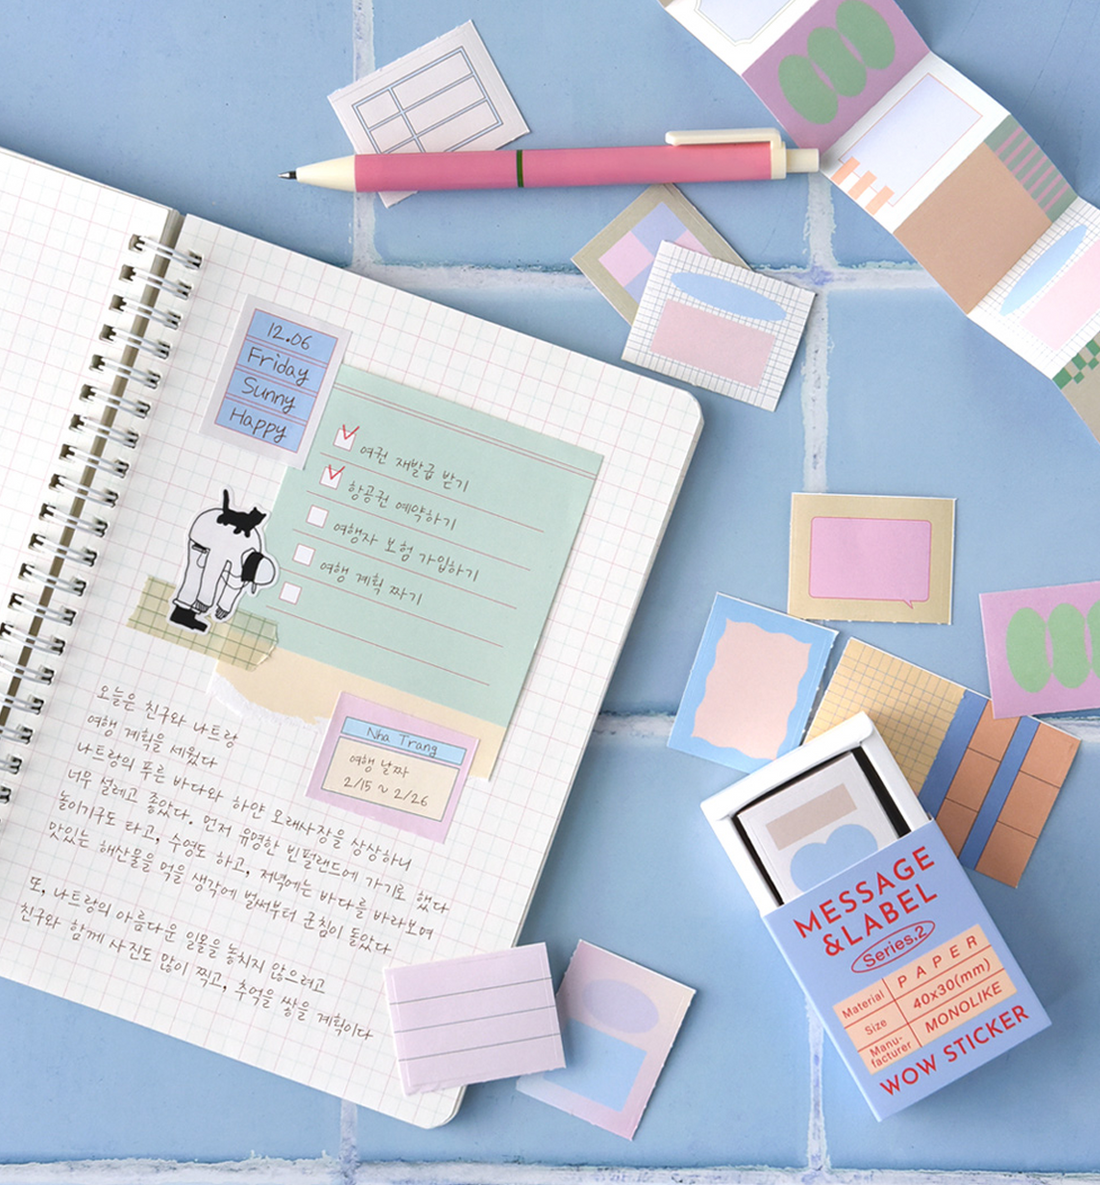 12.06
Friday
Sunny
Happy
여권 재발급 받기
항공권 예약하기
여행자 보험 가입하기
여행 계획 짜기
Nha Trang
여행 날짜
2/15 ~ 2/26
오늘은 친구와 나트랑
여행 계획을 세웠다
나트랑의 푸른 바다와 하얀 모래사장을 상상하니
너무 설레고 좋았다. 먼저 유명한 빈펄랜드에 가기로 했다
놀이기구도 타고, 수영도 하고, 저녁에는 바다를 바라보며
맛있는 해산물을 먹을 생각에 벌써부터 군침이 돌았다
또, 나트랑의 아름다운 일몰을 놓치지 않으려고
친구와 함께 사진도 많이 찍고, 추억을 쌓을 계획이다
MESSAGE
&LABEL
Series.2
Material PAPER
Size 40x30(mm)
Manu-
facturer MONOLIKE
WOW STICKER